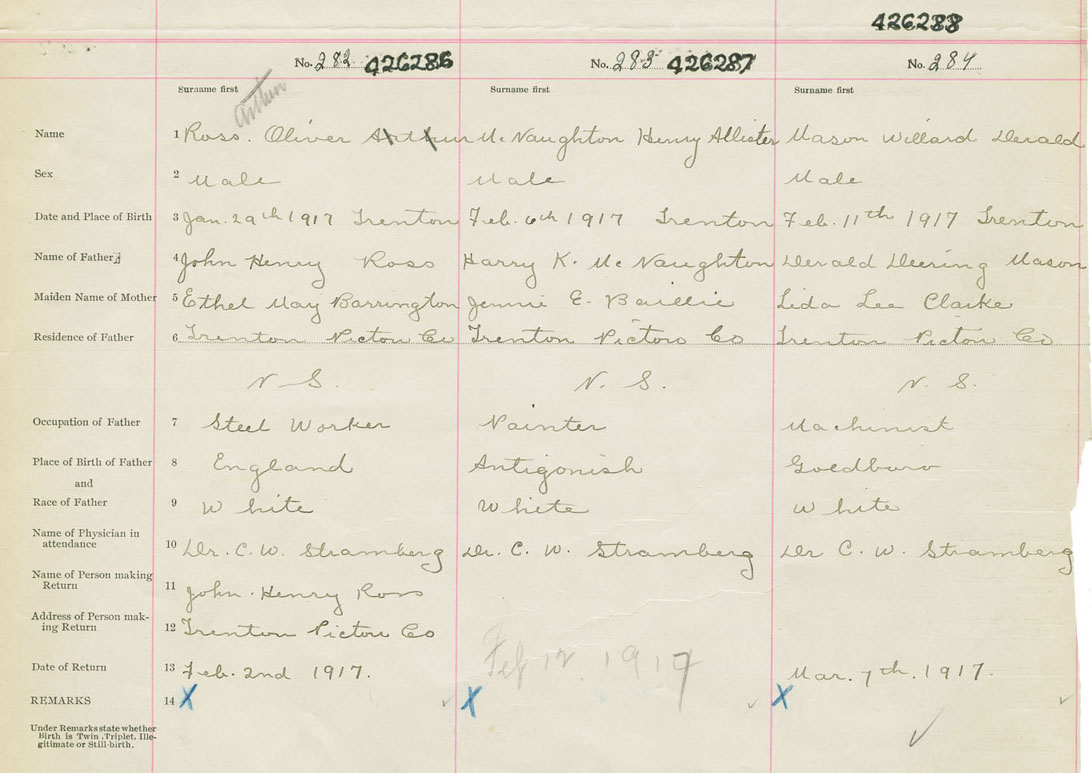 426288
No. 282 426286 No. 283 426287 No. 284
Surname first Surname first Surname first
Arthur
Name 1 Ross. Oliver Arthur McNaughton Henry Allister Mason Willard Derald
Sex 2 Male Male Male
Date and Place of Birth 3 Jan. 29th 1917 Trenton Feb. 6th 1917 Trenton Feb. 11th 1917 Trenton
Name of Father 4 John Henry Ross Harry K. McNaughton Derald Deering Mason
Maiden Name of Mother 5 Ethel May Barrington Jennie E. Baillie Lida Lee Clarke
Residence of Father 6 Trenton Pictou Co Trenton Pictou Co Trenton Pictou Co
N S. N. S. N. S.
Occupation of Father 7 Steel Worker Painter Machinist
Place of Birth of Father 8 England Antigonish Goldburo
and
Race of Father 9 White White White
Name of Physician in
attendance 10 Dr. C. W. Stramberg Dr. C. W. Stramberg Dr C. W. Stramberg
Name of Person making
Return 11 John Henry Ross
Address of Person mak-
ing Return 12 Trenton Pictou Co
Date of Return 13 Feb. 2nd 1917. Feb 12. 1917 Mar. 7th. 1917.
REMARKS 14 X X X
Under Remarks state whether
Birth is Twin, Triplet, Ille-
gitimate or Still-birth.